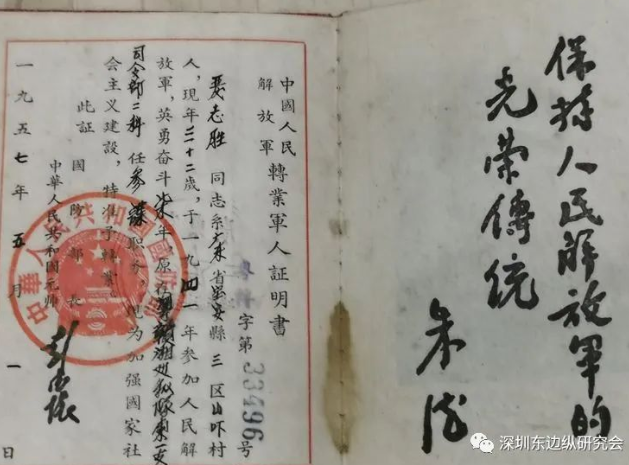 保持人民解放軍的
光荣傳統
朱德
中國人民
解放軍
轉業軍人証明書
字第33496号
志胜 同志系广东省宝安縣三区山吓村
人，現年三十二歲，于一九四一年参加人民解
放軍，英勇奋斗 年，原在
司令部二科任参謀职务，現为加强國家社
会主义建設，特准予轉業。
此証
國防部長
中華人民共和國元帅 彭德怀
一九五七年五月一日
中華人民共和國國防部
深圳东边纵研究会